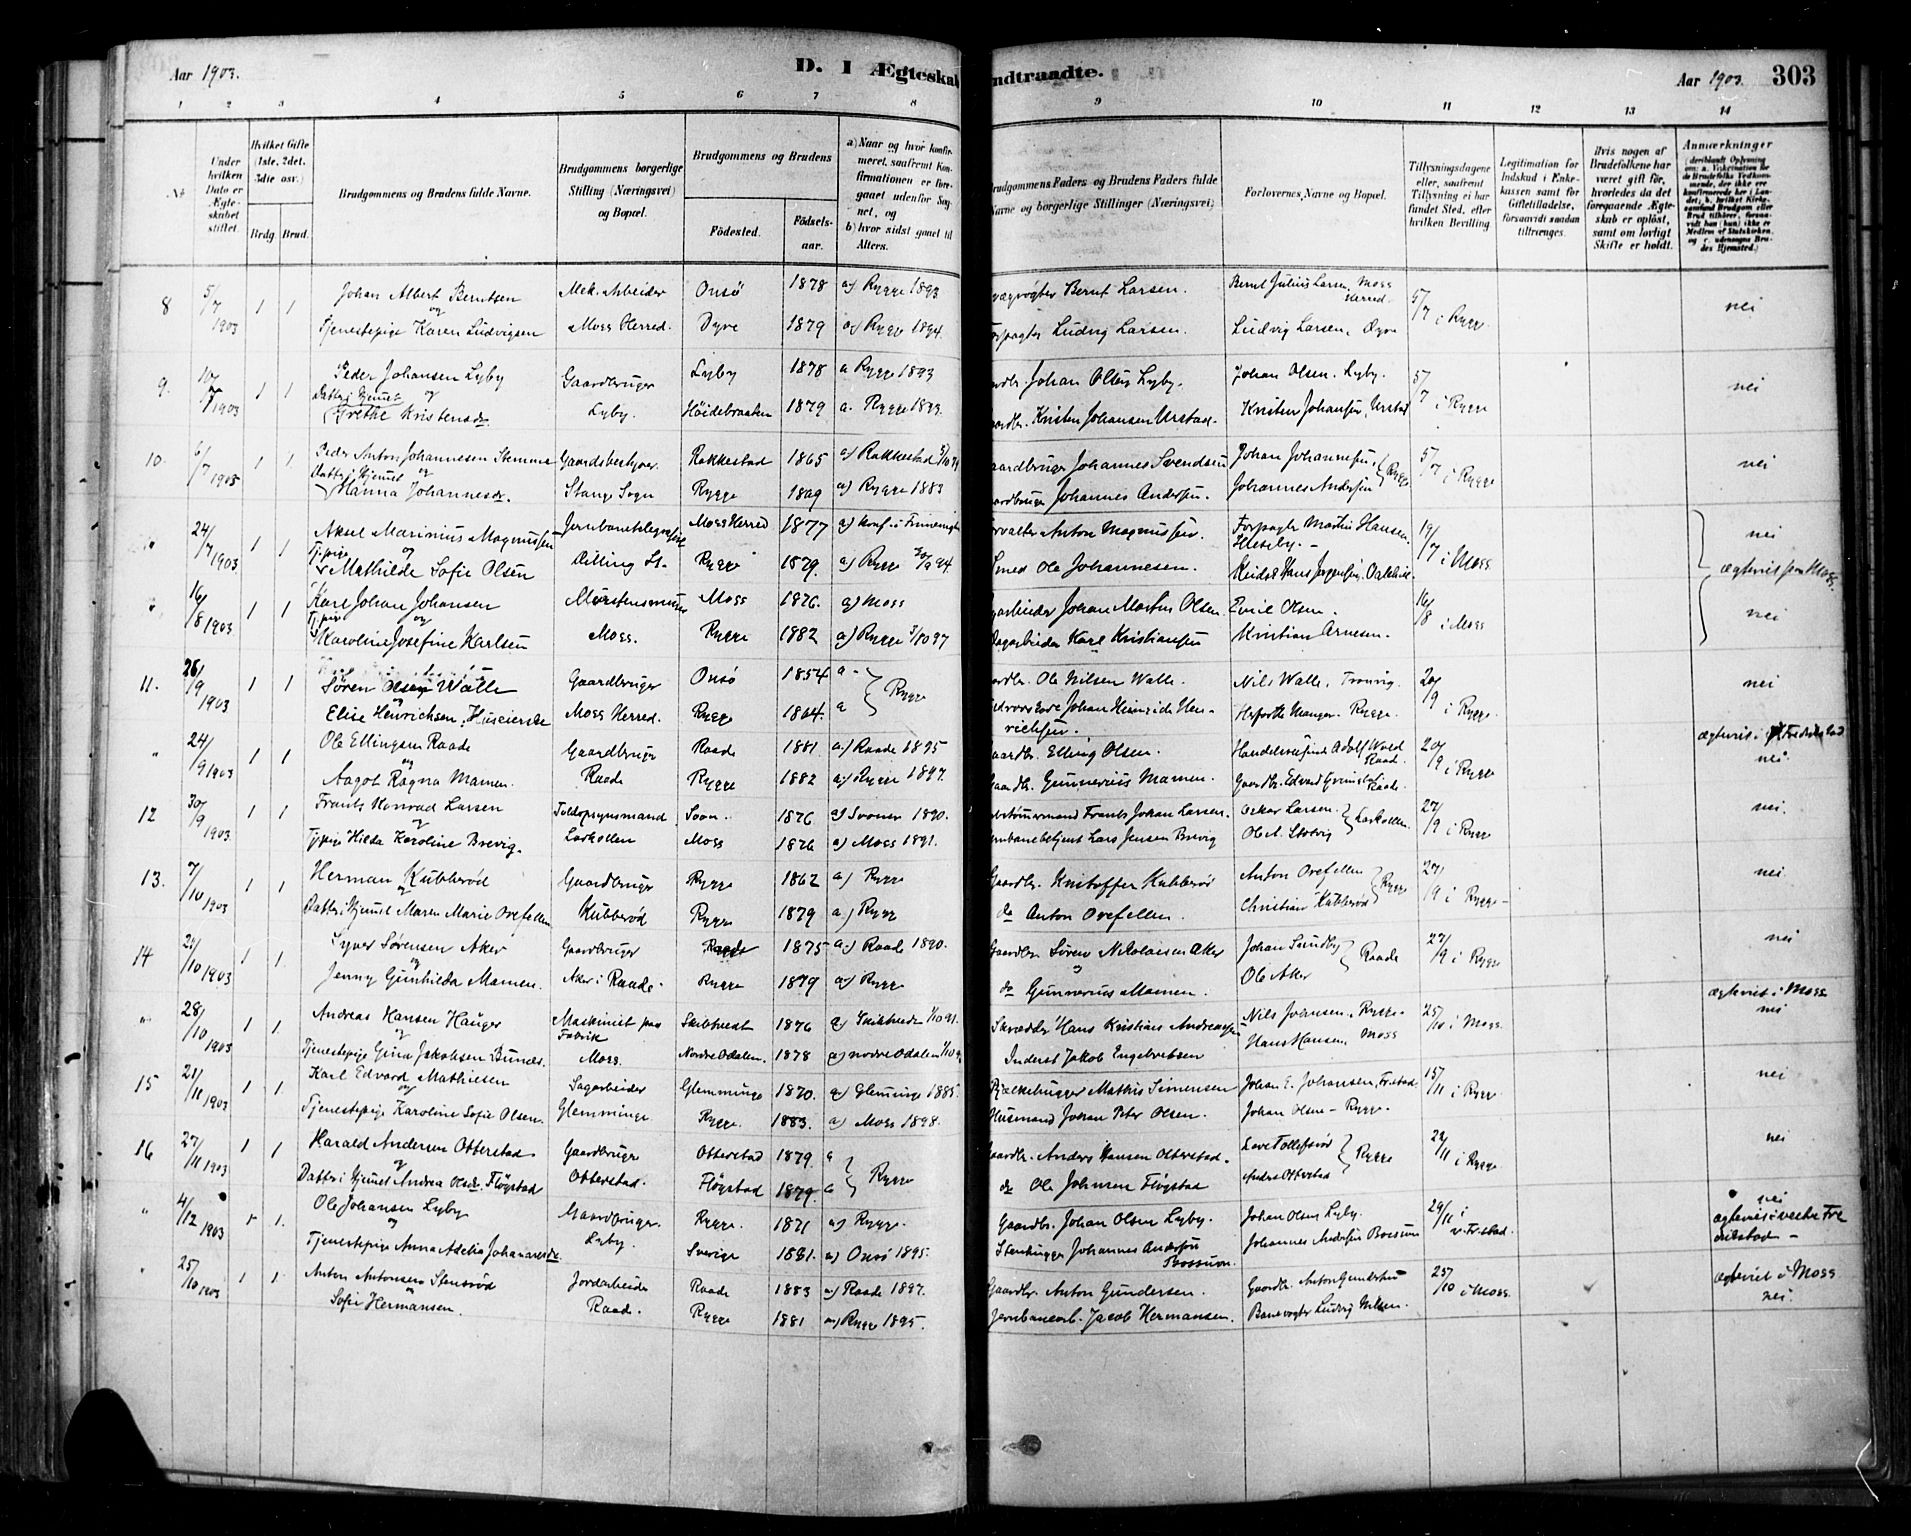 Aar 1903. D. 1 Ægteskab indtraadte. Aar 1903. 303
1 2 3 4 5 6 7 8 9 10 11 12 13 14
No
Under hvilken Dato er Ægteskabet stiftet.
Hvilket Gifte (1ste, 2det, 3die osv.)
Brdg. Brud.
Brudgommens og Brudens fulde Navne.
Brudgommens borgerlige Stilling (Næringsvei) og Bopæl.
Brudgommens og Brudens
Fødested. Fødselsaar.
a) Naar og hvor konfirmeret, saafremt Konfirmationen er foregaaet udenfor Sognet, og
b) hvor sidst gaaet til Alters.
Brudgommens Faders og Brudens Faders fulde Navne og borgerlige Stillinger (Næringsvei)
Forlovernes Navne og Bopæl.
Tillysningsdagene eller, saafremt Tillysning ei har fundet Sted, efter hvilken Bevilling
Legitimation for Indskud i Enkekassen samt for Giftetilladelse, forsaavidt saadan tiltrænges.
Hvis nogen af Brudefolkene har været gift før, hvorledes da det foregaaende Ægteskab er opløst, samt om lovligt Skifte er holdt.
Anmærkninger
8 5/7 1903 1 1 Johan Albert Berntsen Mek. Arbeider Onsø 1878 a) Rygge 1893 Bernt Larsen. Bernt Julius Larsen, Moss Herred 5/7 i Rygge nei
og
Tjenestepige Karen Ludvigsen Moss Herred. Dyre 1879 a) Rygge 1894. Ludvig Larsen. Ludvig Larsen, Dyre
9. 1903 1 1 Peder Johansen Lyby Gaardbruger Lyby 1878 a Rygge 1893 Johan Olsen Lyby. Johan Olsen. Lyby. 5/7 i Rygge nei
Datter i Hjemmet og
Grethe Kristensdr Lyby. Høidebraaten 1879 a. Rygge 1893. Kristen Johansen Urstad. Kristen Johansen, Urstad
10. 6/7 1903 1 1 Peder Anton Johannesen Stemme Gaardsbestyrer. Rakkestad 1865 a) Rakkestad Gaardbruger Johannes Svendsen Johan Johannesen, Rygge 5/7 i Rygge nei
Datter i Hjemmet og
Hanna Johannesdr. Stange Sogn Rygge 1869 a) Rygge 1883 Gaardbruger Johannes Andersen. Johannes Andersen
" 24/7 1903 1 1 Aksel Marinius Magnussen Jernbanetelegrafist Moss Herred 1877 Forvalter Anton Magnussen. Forpagter Martin Hansen 19/7 i Moss nei
Tj.pige og
Mathilde Sofie Olsen Dilling St. Rygge 1879. a) Rygge 94. Smed Ole Johannesen. ægteviet fra Moss.
" 16/8 1903 1 1 Karl Johan Johansen Murstensmurer Moss 1876. a) Moss Johan Martin Olsen Emil Olsen. 16/8 i Moss nei
Tj.pige og
Karoline Josefine Karlsen Moss. Rygge 1882 a) Rygge 97 Dagarbeider Karl Kristiansen Kristian Arnesen.
11. 26/9 1903 1 1 Søren Olsen Walle Gaardbruger Onsø 1854 a - Rygge Ole Nilsen Walle. Nils Walle, Tronvig. 20/9 i Rygge. nei
og
Elise Henrichsen, Huseierske Moss Herred. Rygge 1864. a Johan Heinrich Henrichsen. Rygge.
" 24/9 1903 1 1 Ole Ellingsen Raade Gaardbruger Raade 1881 a) Raade 1895 Elling Olsen. Adolf Wold Raade 20/9 i Rygge ægteviet i Fredrikstad nei.
og
Aagot Ragna Mamen. Raade Rygge 1882 a) Rygge 1897. Gaardbr. Gunnerius Mamen. Gaardbr. Edvard Grimstad Raade.
12 30/9 1903 1 1 Frants Konrad Larsen Toldopsynsmand Soon. 1876 a) Svoner 1890. Frants Johan Larsen. Oskar Larsen. Larkollen. 27/9 i Rygge nei.
og
Tj.pige Hilda Karoline Brevig. Larkollen Moss 1876 a) Moss 1891. Lars Jensen Brevig
13. 7/10 1903 1 1 Herman Kubberød Gaardbruger Rygge 1862 a) Rygge Gaardbr. Kristoffer Kubberød Anton Ovefellen Rygge 27/9 i Rygge - nei.
og
Datter i Hjemmet Maren Marie Ovefellen Kubberød Rygge 1879 a) Rygge do Anton Ovefellen. Christian Kubberød
14 1903 1 1. Syver Sørensen Aker Gaardbruger Raade 1875 a) Raade 1890. Gaardbr Søren Nikolaisen Aker Johan Sundby Raade 27/9 i Rygge nei
og
Jenny Gunhilda Mamen. Aker i Raade. Rygge 1879 a) Rygge do Gunnerius Mamen. Ole Aker
" 28/10 1903 1 1. Andreas Hansen Hauger Maskinist paa Fabrik Skibtvedt 1876 a) Skibtvedt Skrædder Hans Kristian Andreassen Nils Johansen, Rygge. 25/10 i Moss. ægteviet i Moss nei
og
Tjenestepige Gina Jakobsen Bunæs. Moss. Nordre Odalen. 1878 a) nordre Odalen Inderst Jakob Engebretsen Hans Hansen, Moss
15 21/11 1903 1 1. Karl Edvard Mathiesen Sagarbeider Glemminge 1870. a) Glemminge 1885. Mathis Simensen Johan E. Johansen, Fr.stad. 15/11 i Rygge. nei
og
Tjenestepige Karoline Sofie Olsen. Glemminge Rygge. 1883. a) Moss 1898. Husmand Johan Peter Olsen. Johan Olsen - Rygge.
16 27/11 1903 1 1. Harald Andersen Otterstad Gaardbruger Otterstad 1879. a Rygge Gaardbr. Anders Hansen Otterstad. Rygge 22/11 i Rygge. nei
og
Datter i Hjemmet Andrea Olsdr. Fløgstad Otterstad. Fløgstad 1879. a do Ole Johnsen Fløgstad Anders Otterstad
" 4/12 1903 1 1. Ole Johansen Lyby Gaardbruger. Rygge. 1871 a) Rygge. Gaardbr. Johan Olsen Lyby. Johan Olsen Lyby. 29/11 i v. Fr.stad. nei ægteviet i vestre Fredrikstad -
og
Tjenestepige Anna Adelia Johannesdr. Lyby. Sverige 1881. a) Onsø 1895. Stenhugger Johannes Andersen Johannes Andersen
" 25/10 1903 1 1. Anton Antonsen Stensrød Jordarbeider Raade 1883 a) Raade 1897. Gaardbr. Anton Gundersen. Gaardbr. Anton Gundersen 25/10 i Moss. ægteviet i Moss nei.
Sofie Hermansen. Raade. Rygge 1881 a) Rygge 1895. Jernbanearb. Jacob Hermansen. Banevogter Ludvig Nilsen.